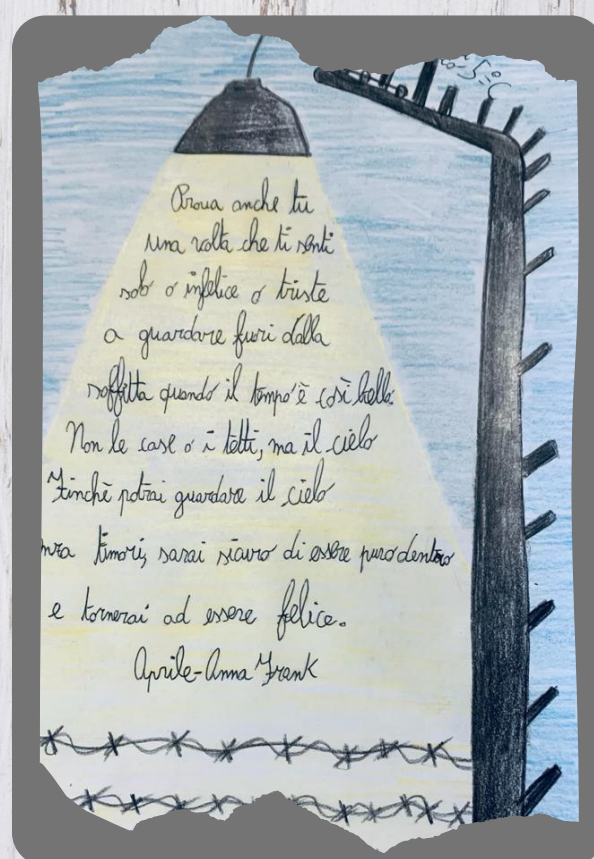 5°C
Prova anche tu
una volta che ti senti
solo o infelice o triste
a guardare fuori dalla
soffitta quando il tempo è così bello.
Non le case o i tetti, ma il cielo
Finchè potrai guardare il cielo
nza timori, sarai sicuro di essere puro dentro
e tornerai ad essere felice.
Aprile-Anna Frank